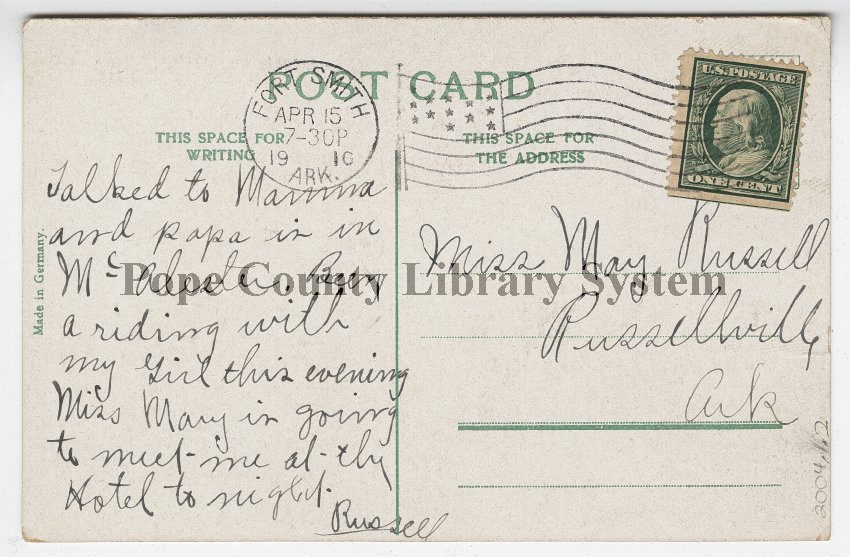 POST CARD
FORT SMITH
APR 15
7-30P
19 10
ARK.
U.S. POSTAGE
ONE CENT
THIS SPACE FOR
WRITING
THIS SPACE FOR
THE ADDRESS
Talked to Mamma
and papa is in
McAlester. Been
a riding with
my girl this evening
Miss Mary is going
to meet me at the
Hotel to night.
Russell
Miss May Russell
Russellville
Ark
Pope County Library System
Made in Germany.
2004.1.2